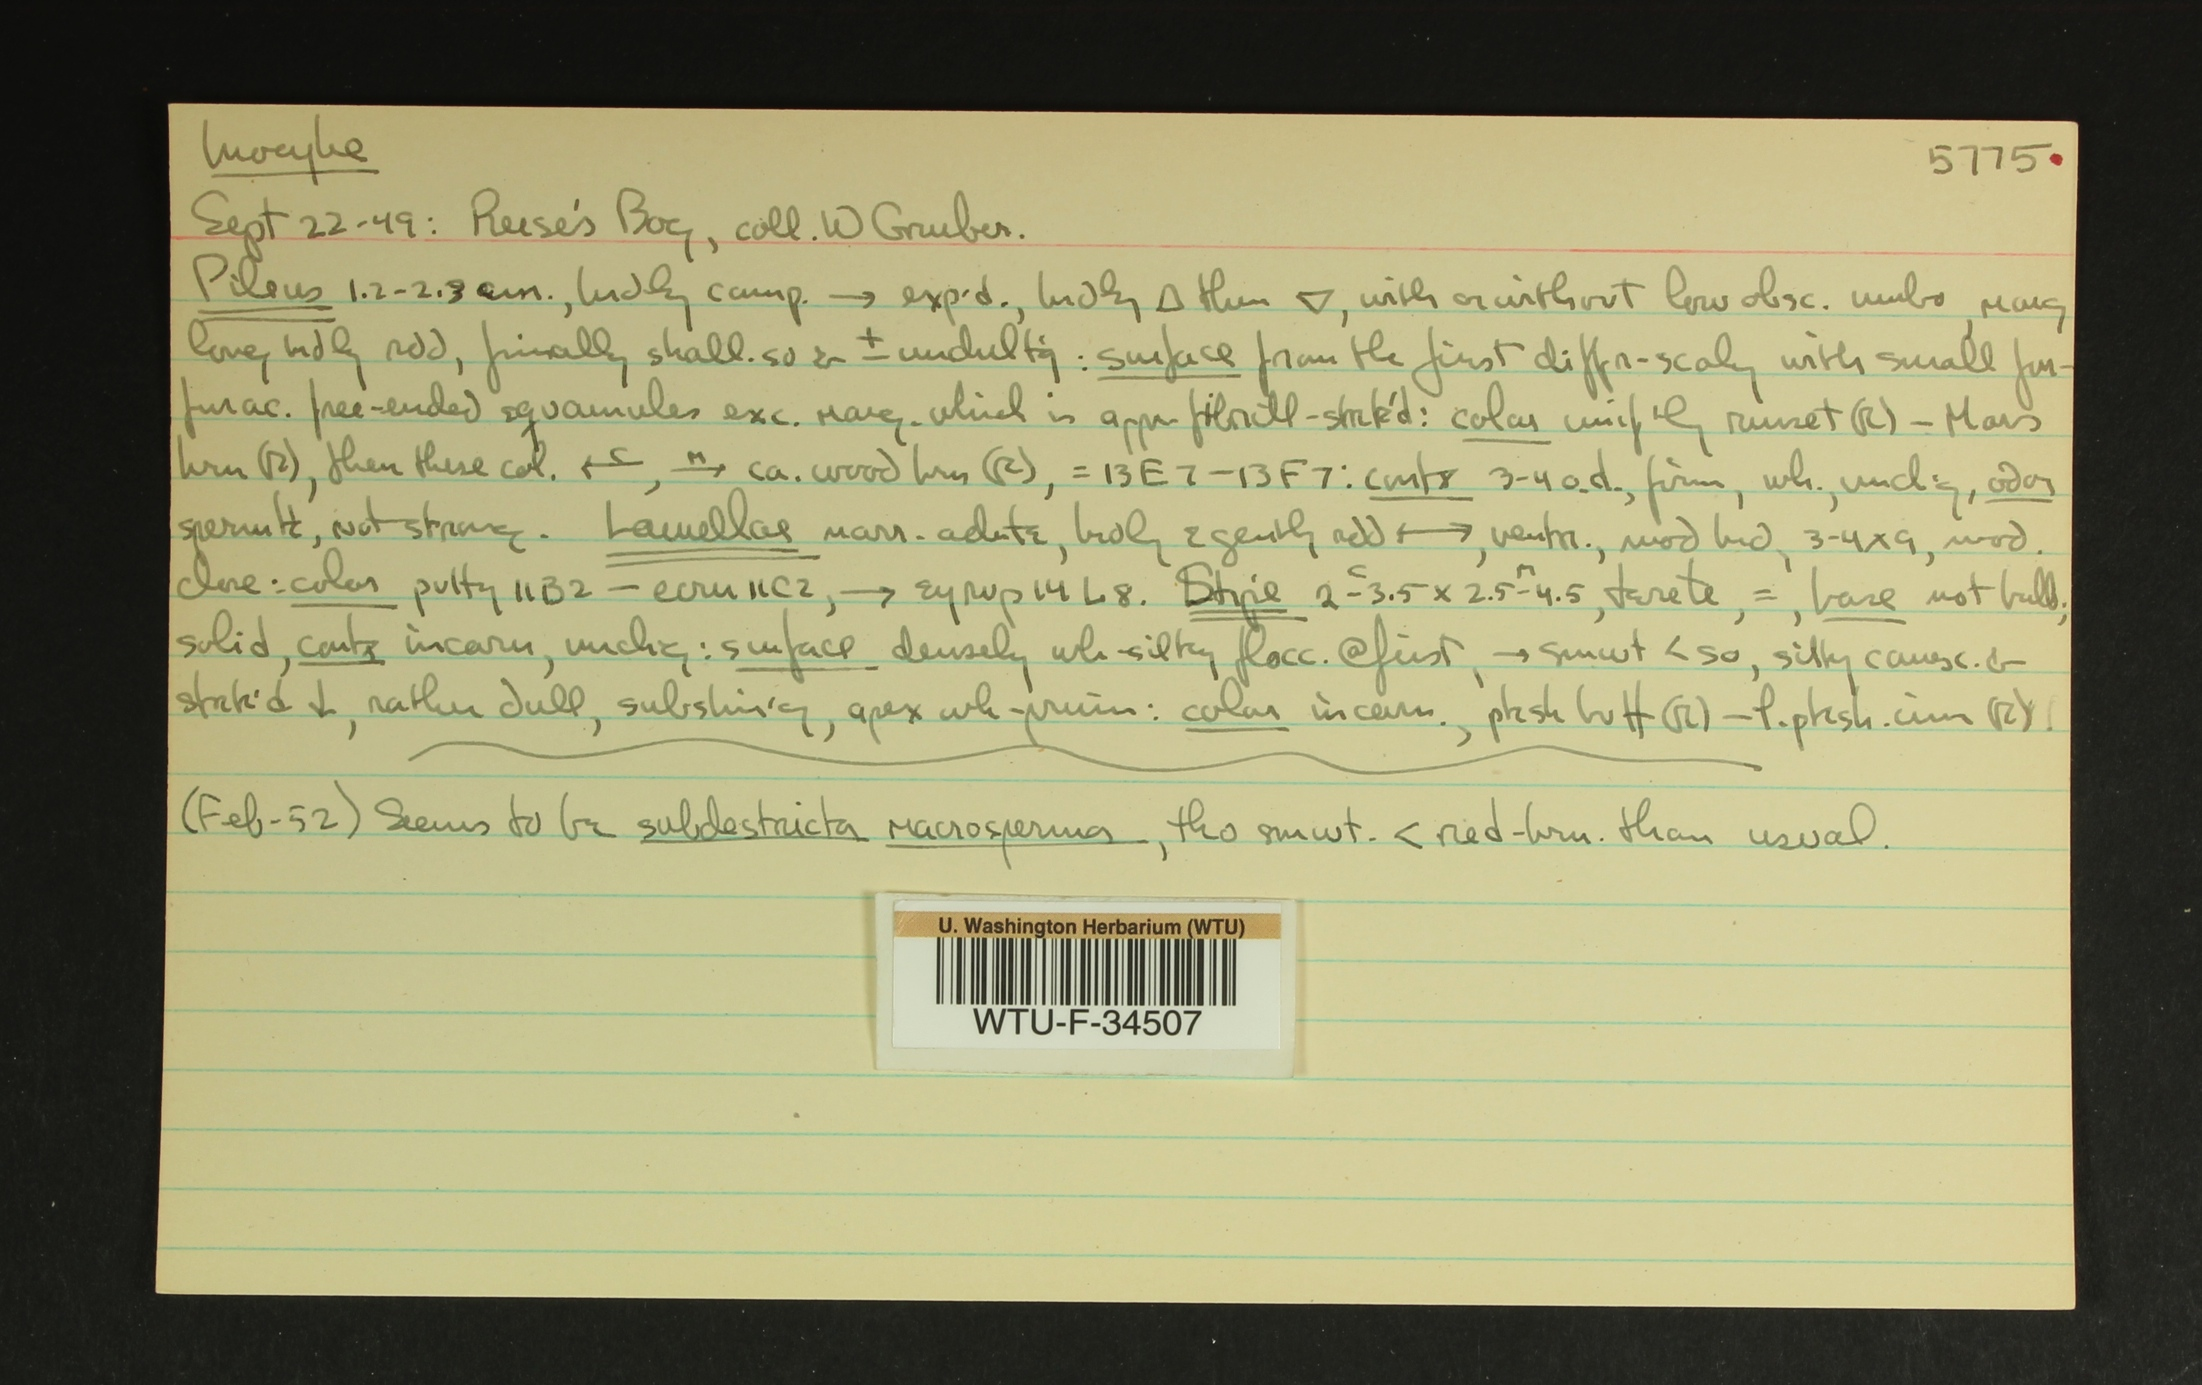 Inocybe 5775
Sept 22-49: Reese's Bog, coll. W Gruber.
Pileus 1.2-2.3 cm., brdly camp. → exp'd., brdly Δ then ▽, with or without low obsc. umbo, marg
long brdly rdd, finally shall. so & ± undult'g: surface from the first diffr-scaly with small fur-
furac. free-ended squamules exc. marg. which is appr-fibrill-strk'd: color unif'ly russet (R) – Mars
brn (R), then these col. ←C, M→ ca. wood brn (R), = 13E7–13F7: contx 3-4 o.d., firm, wh., unch'g, odor
spermtc, not strong. Lamellae narr. adntx, brdly & gently rdd ↔, ventr., mod brd, 3-4x9, mod.
close: color putty 11B2 – ecru 11C2, → syrup 14L8. Stipe 2-3.5 c x 2.5-4.5 m, terete, =, base not bulb,
solid, contx incarn, unch'g: surface densely wh-silky flocc. @ first, → smwt < so, silky canesc. &
strk'd ↓, rather dull, subshin'g, apex wh-pruin: color incarn., pksh buff (R) – l. pksh. cinn (R)
(Feb-52) Seems to be subdestricta macrosperma, tho smwt. < red-brn. than usual.
U. Washington Herbarium (WTU)
WTU-F-34507